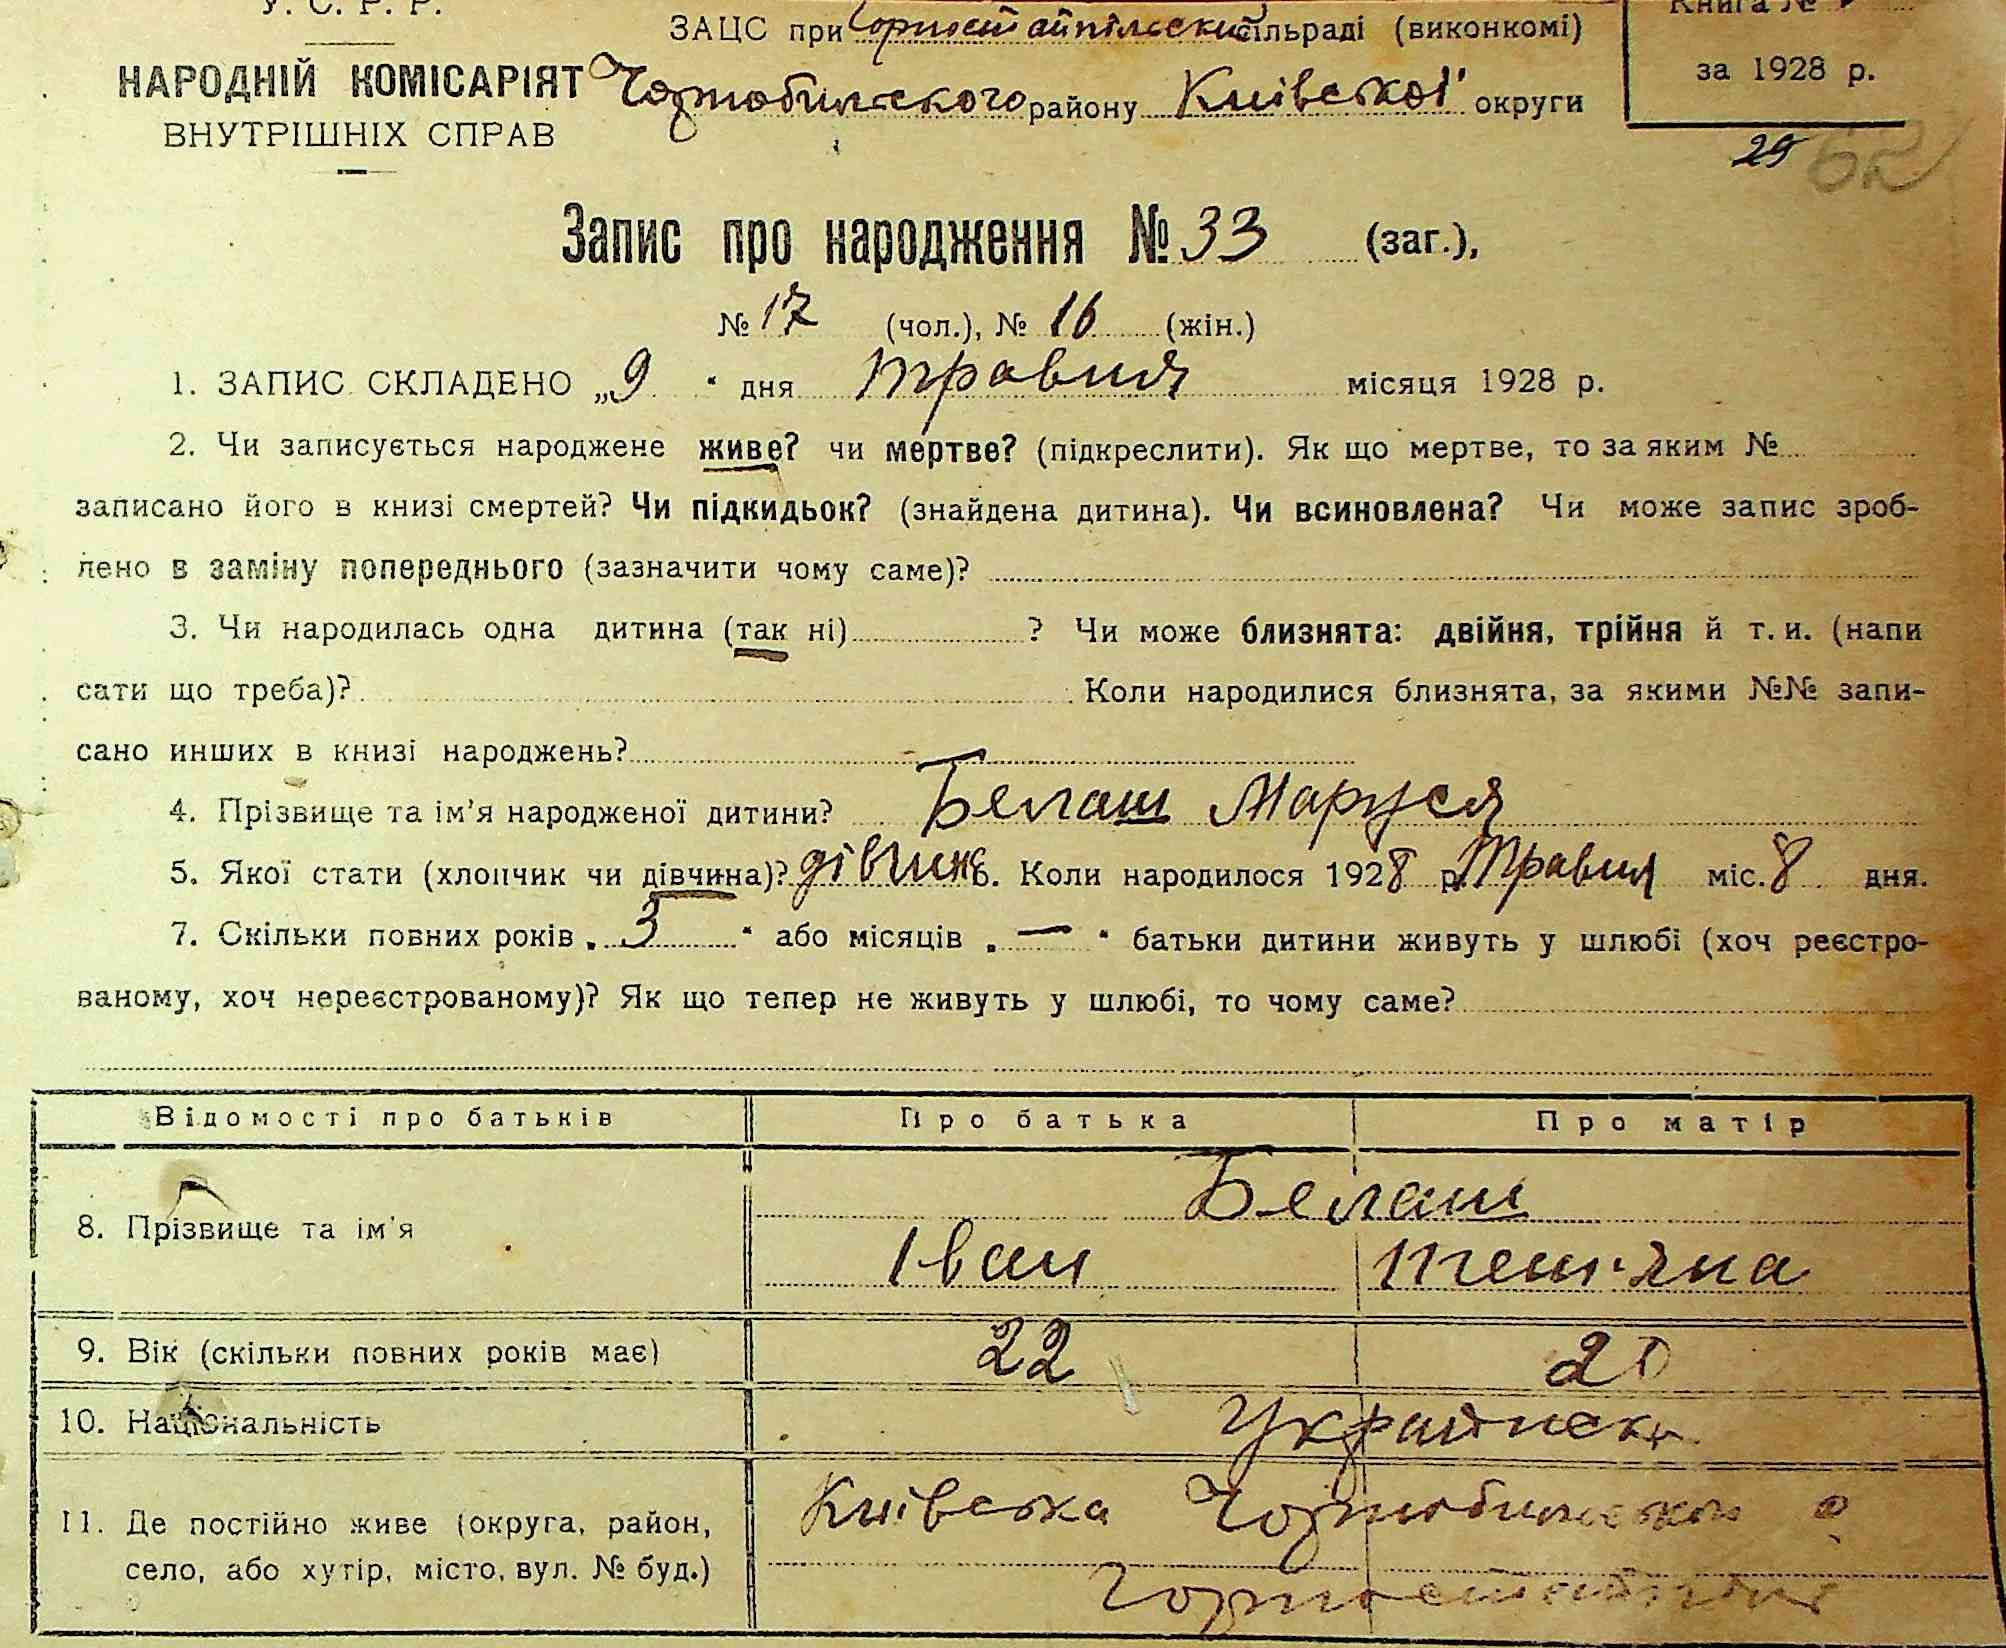 У. С. Р. Р.
ЗАЦС при Горностайпільский сільраді (виконкомі)
Книга №
НАРОДНІЙ КОМІСАРІЯТ
Чорнобильського району Київської округи
за 1928 р.
ВНУТРІШНІХ СПРАВ
29 62
Запис про народження № 33 (заг.),
№ 17 (чол.), № 16 (жін.)
1. ЗАПИС СКЛАДЕНО „9 “ дня Травня місяця 1928 р.
2. Чи записується народжене живе? чи мертве? (підкреслити). Як що мертве, то за яким №
записано його в книзі смертей? Чи підкидьок? (знайдена дитина). Чи всиновлена? Чи може запис зроб-
лено в заміну попереднього (зазначити чому саме)?
3. Чи народилась одна дитина (так ні) ? Чи може близнята: двійня, трійня й т. и. (напи
сати що треба)? Коли народилися близнята, за якими №№ запи-
сано инших в книзі народжень?
4. Прізвище та ім'я народженої дитини? Белаш Маруся
5. Якої стати (хлопчик чи дівчина)? дівчина 6. Коли народилося 1928 р. Травня міс. 8 дня.
7. Скільки повних років „ 3 “ або місяців „ — “ батьки дитини живуть у шлюбі (хоч реєстро-
ваному, хоч нереєстрованому)? Як що тепер не живуть у шлюбі, то чому саме?
Відомості про батьків Про батька Про матір
Белаш
8. Прізвище та ім'я
Іван Тет'яна
9. Вік (скільки повних років має) 22 20
10. Національність Українск
11. Де постійно живе (округа, район, Київська Чорнобильськой
село, або хутір, місто, вул. № буд.)